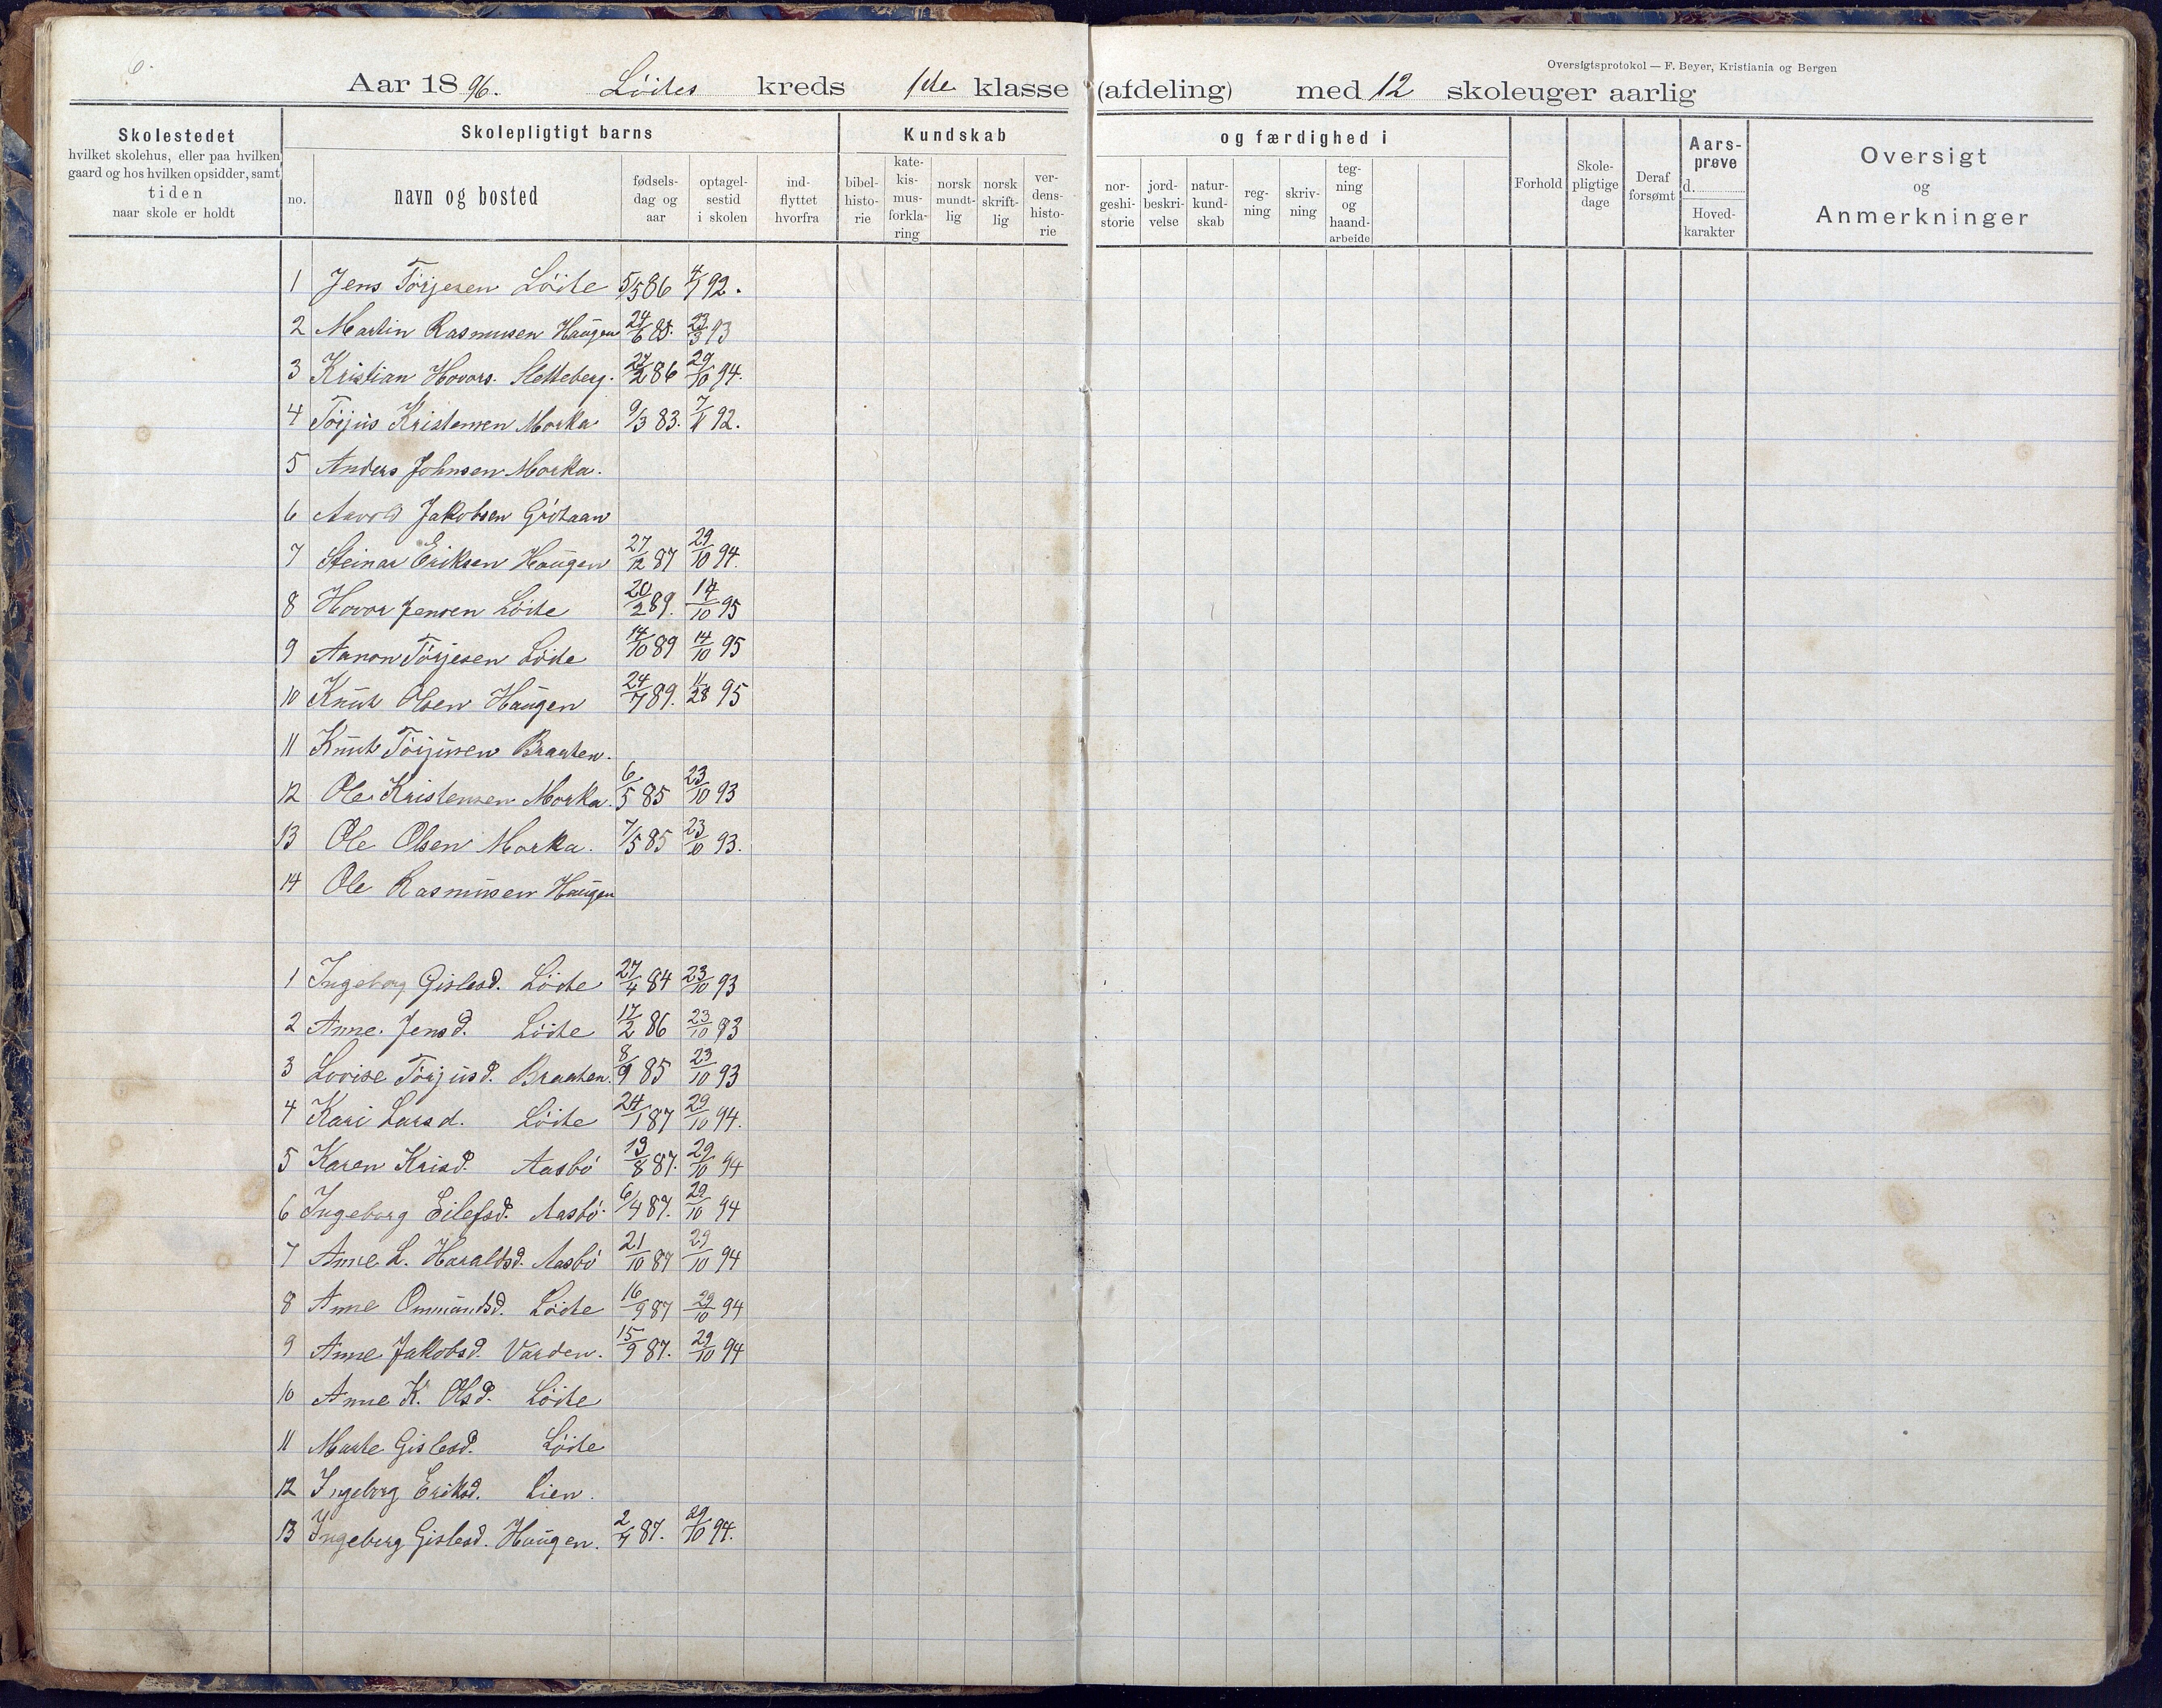 6.
Oversigtsprotokol — F. Beyer, Kristiania og Bergen
Aar 1896. Löites kreds 1ste klasse (afdeling) med 12 skoleuger aarlig
Skolestedet
hvilket skolehus, eller paa hvilken
gaard og hos hvilken opsidder, samt
tiden
naar skole er holdt
Skolepligtigt barns
no.
navn og bosted
fødsels-
dag og
aar
optagel-
sestid
i skolen
ind-
flyttet
hvorfra
Kundskab
bibel-
histo-
rie
kate-
kis-
mus-
forkla-
ring
norsk
mundt-
lig
norsk
skrift-
lig
ver-
dens-
histo-
rie
og færdighed i
nor-
geshi-
storie
jord-
beskri-
velse
natur-
kund-
skab
reg-
ning
skriv-
ning
teg-
ning
og
haand-
arbeide
Forhold
Skole-
pligtige
dage
Deraf
forsømt
Aars-
prøve
d.
Hoved-
karakter
Oversigt
og
Anmerkninger
1 Jens Törjesen Löite 5/5 86 4/7 92.
2 Martin Rasmusen Haugen 24/6 85. 23/3 93
3 Kristian Hovors. Sletteberg. 27/2 86 29/10 94.
4 Törjus Kristensen Morka 9/3 83. 7/11 92.
5 Anders Johnsen Morka.
6 Aavold Jakobsen Grötaan
7 Steinar Eriksen Haugen 27/12 87 29/10 94.
8 Hovor Jensen Löite 20/2 89. 14/10 95
9 Aanon Törjesen Löite 14/10 89 14/10 95
10 Knut Olsen Haugen 24/7 89. 11/28 95
11 Knut Törjusen Braaten.
12 Ole Kristensen Morka. 6/5 85 23/10 93
13 Ole Olsen Morka. 7/5 85 23/10 93.
14 Ole Rasmusen Haugen
1 Ingeborg Gislesd. Löite 27/4 84 23/10 93
2 Anne. Jensd. Löite 17/2 86 23/10 93
3 Lovise Törjusd. Braaten. 8/9 85 23/10 93
4 Kari Larsd. Löite 24/1 87 29/10 94.
5 Karen Krisd. Aasbö 13/8 87. 29/10 94
6 Ingeborg Eilefsd. Aasbö. 6/4 87. 29/10 94
7 Anne L. Haraldsd. Aasbö 21/10 87 29/10 94
8 Anne Ommundsd. Löite 16/9 87 29/10 94
9 Anne Jakobsd. Varden. 15/9 87. 29/10 94
10 Anne K. Olsd. Löite
11 Marte Gislesd. Löite
12 Ingeborg Eriksd. Lien.
13 Ingeborg Gislesd. Haugen. 2/7 87. 29/10 94.